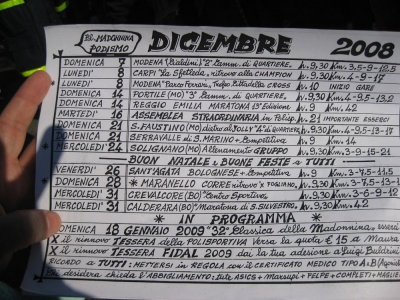 PG. MADONNINA PODISMO DICEMBRE 2008
DOMENICA 7 MODENA (Cialdini) "2° Camm. di QUARTIERE, h. 9,30 Km. 3.5-9-12.5
LUNEDI' 8 CARPI "La Sfilada, ritrovo alla CHAMPION h. 9,30 Km. 4-9-17
LUNEDI' 8 MODENA Parco Ferrari, Trofeo Cittadella CROSS h. 10 INIZIO GARE
DOMENICA 14 PORTILE (MO) 3° Camm. di QUARTIERE, h. 9,30 Km. 4-9,5-13,2
DOMENICA 14 REGGIO EMILIA MARATONA 13° Edizione h. 9 Km. 42
MARTEDI' 16 ASSEMBLEA STRAORDINARIA in Polisp. h. 21 IMPORTANTE ESSERCI
DOMENICA 21 S. FAUSTINO (MO) dietro al JOLLY "4° di QUARTIERE h. 9,30 Km. 4-9,5-13-17
DOMENICA 21 SERRAVALLE di S. MARINO + Competitiva h. 9 Km. 14
MERCOLEDI' 24 SOLIGNANO (MO) Allenamento GRUPPO h. 9,30 Km. 3-9-15-21
BUON NATALE e BUONE FESTE a TUTTI
VENERDI' 26 SANT'AGATA BOLOGNESE + Competitiva h. 9 Km. 3-7.5-11.5
DOMENICA 28 * MARANELLO CORRE ritrovo x TOGLIANO, h. 9,30 Km.
MERCOLEDI' 31 CREVALCORE (BO) Centro Sportivo h. 9,30 Km. 3-6-9-12
MERCOLEDI' 31 CALDERARA (BO) "maratona di S. SILVESTRO h. 9,30 Km. 42
* IN PROGRAMMA *
DOMENICA 18 GENNAIO 2009 "32° Classica della Madonnina,
X il rinnovo TESSERA della POLISPORTIVA Versa la quota € 15 a Maura
X il rinnovo TESSERA FIDAL 2009 dai la tua adesione a Luigi
RICORDO a TUTTI: METTERSI in REGOLA con il CERTIFICATO MEDICO TIPO A.B (Agonistica
desidera, chieda l'ABBIGLIAMENTO: tute ASICS + Marsupi + FELPE + COMPLETI + MAGLIE